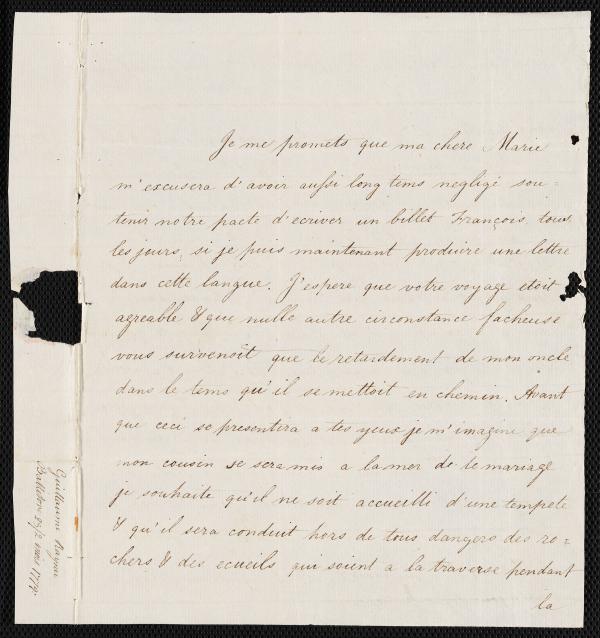 Je me promets que ma chere Marie
m'excusera d'avoir aussi long tems negligé sou=
tenir notre pacte d'ecriver un billet François tous
les jours, si je puis maintenant produire une lettre
dans cette langue. J'espere que votre voyage etoit
agreable & que nulle autre circonstance facheuse
vous survenoit que le retardement de mon oncle
dans le tems qu'il se mettoit en chemin. Avant
que ceci se presentira a tes yeux je m'imagine que
mon cousin se sera mis a la mer de le mariage
je souhaite qu'il ne soit accueilli d'une tempete
& qu'il sera conduit hors de tous dangers des ro=
chers & des ecueils qui soient a la traverse pendant
la
Guillaume
1779.